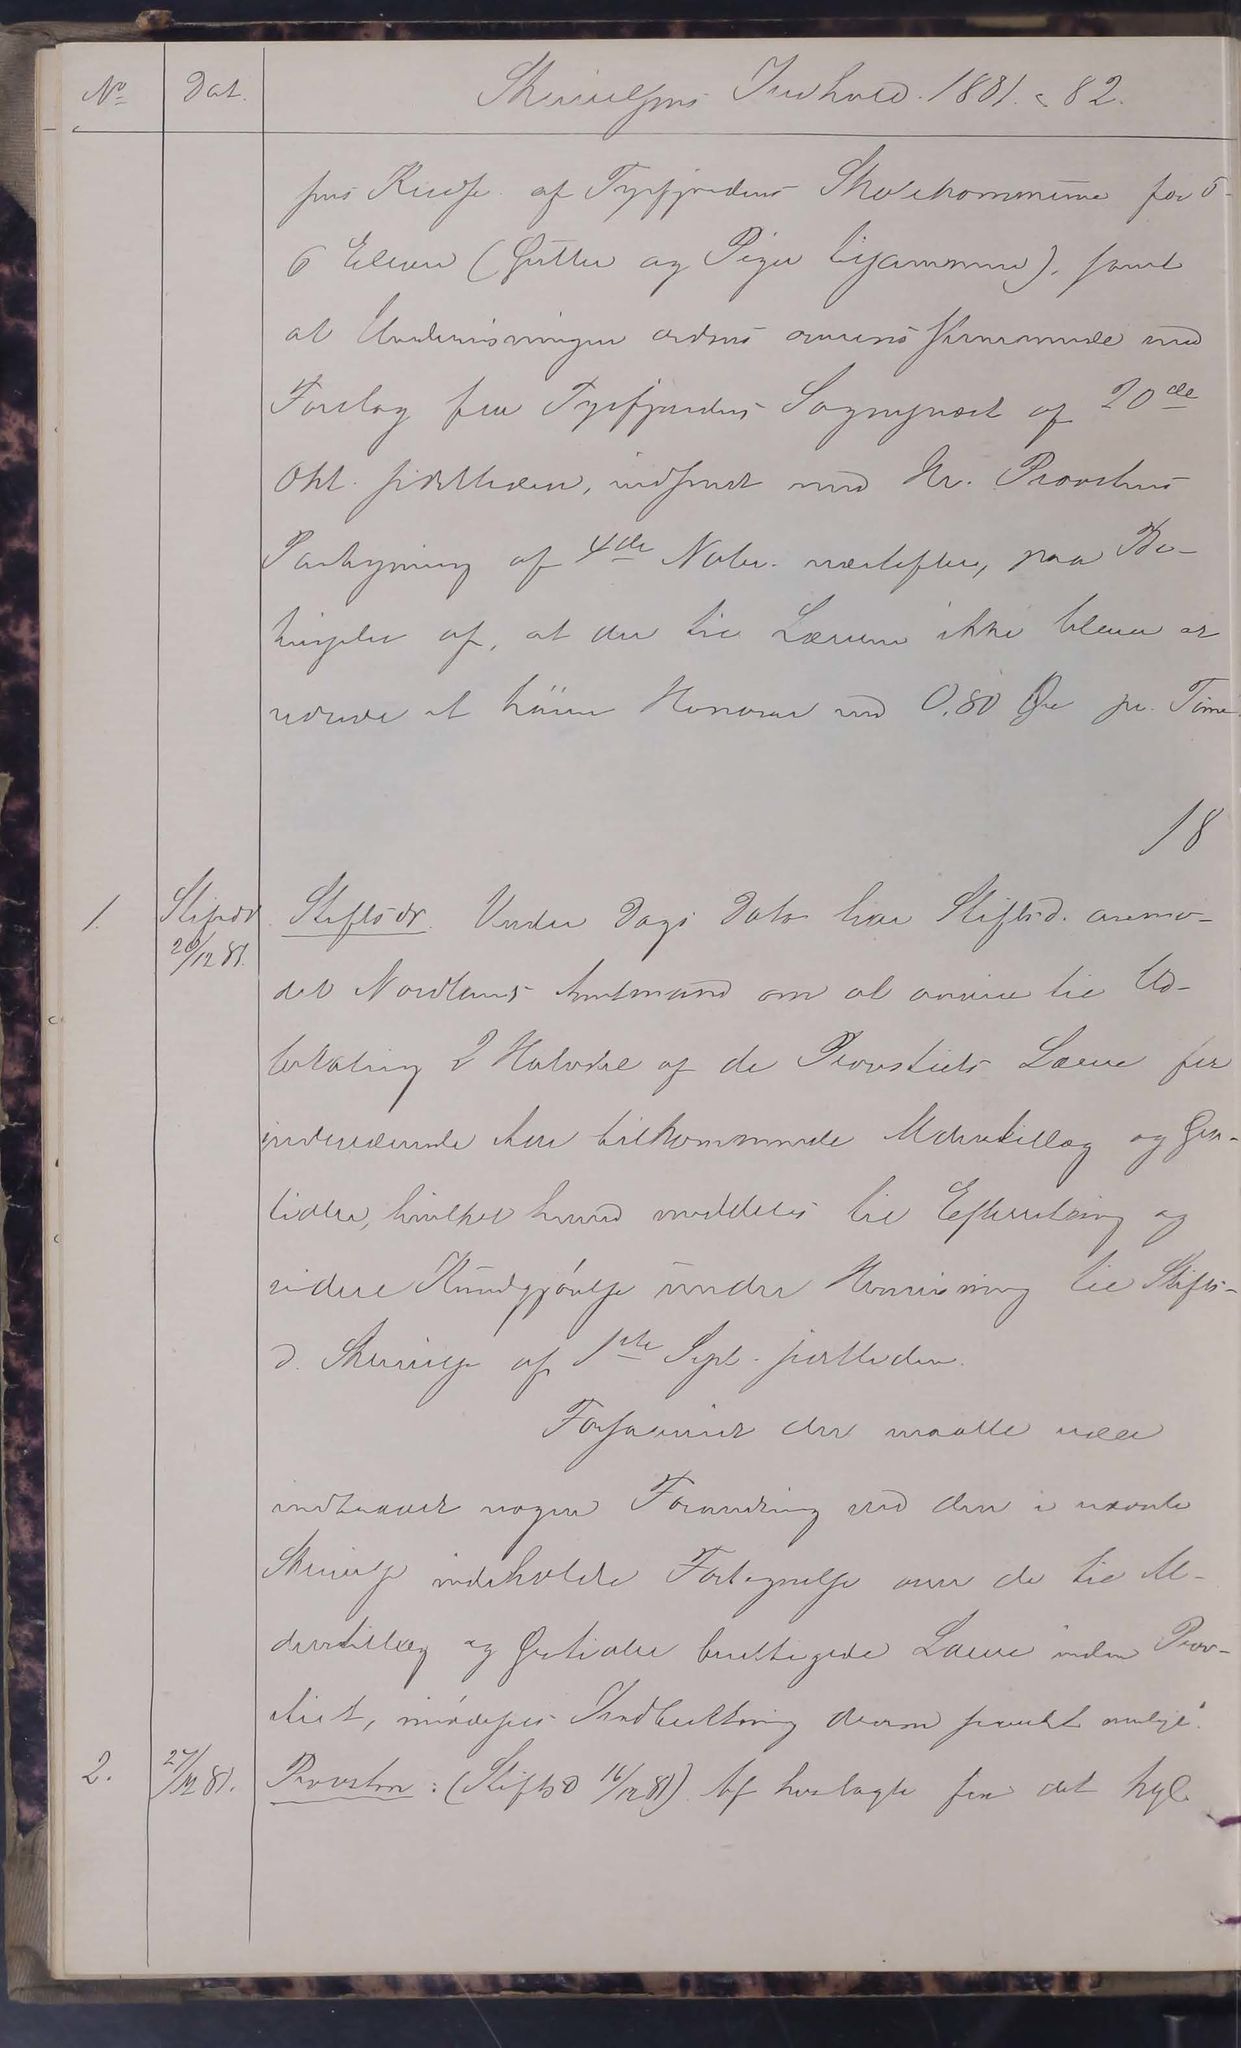 No Dat. Skrivelsens Indhold. 1881. & 82.
Kredse af Tysfjordens Skolekommune for 5-
6 Elever (Gutter og Piger tilsammen), samt
at Undervisningen ordnes overensstemmende med
Forslag fra Tysfjordens Sognepræst af 20de
Okt. sidstleden, indsendt med Hr. Provstens
Paategning af 4de Novbr. næstefter, paa Be-
tingelse af, at der til Læreren ikke bliver at
udrede et høiere Honorar end 0,80 Øre pr. Time.
18
1. Stiftsd. Stiftsdr. Under Dags Dato har Stiftsd. anmo-
20/12 81.
det Nordlands Amtmand om at anvise til Ud-
betaling 2 Halvdel af de Provstiets Lærere for
indeværende Aar tilkommende Alderstillæg og Gra-
tialer, hvilket herved meddeles til Efterretning og
videre Kundgjørelse under Henvisning til Stifts-
d. Skrivelse af 1ste Sept. sidstleden.
Forsaavidt der maatte være
indtraadt nogen Forandring ved den i nævnte
Skrivelse indeholdte Fortegnelse over de til Al-
derstillæg og Gratialer berettigede Lærere inden Prov-
stiet, imødesees Indberetning derom snarest muligt.
2. 27/12 81. Provsten: (Stiftsd 16/12 81). Af hoslagte fra det kgl.